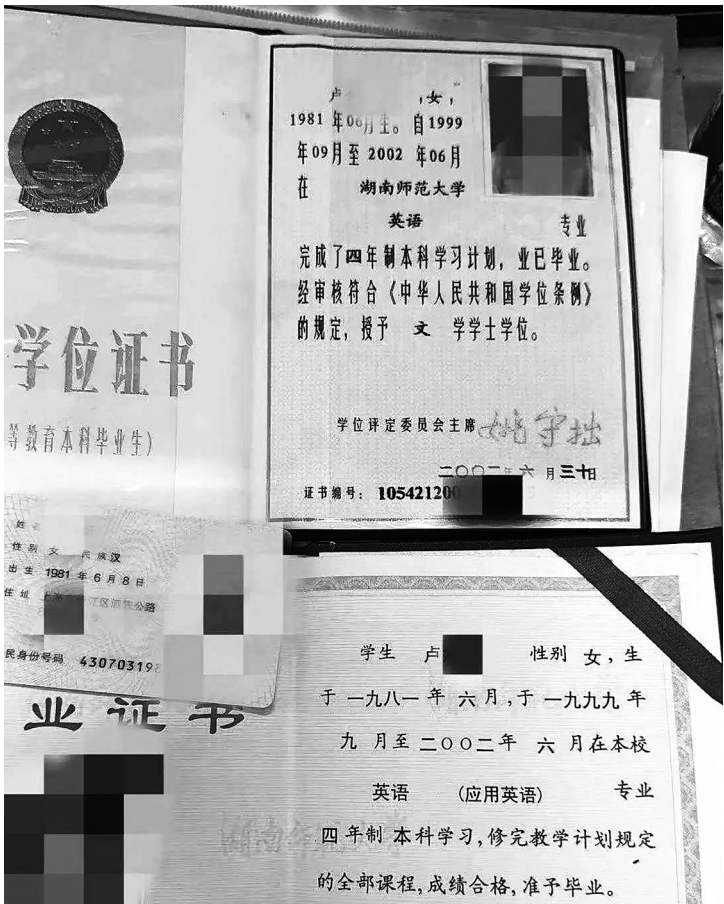 学位证书
等教育本科毕业生)
卢 ,女,
1981 年06月生。自1999
年09月至2002 年06月
在 湖南师范大学
英语 专业
完成了四年制本科学习计划，业已毕业。
经审核符合《中华人民共和国学位条例》
的规定，授予 文 学学士学位。
学位评定委员会主席 姚守拙
二〇〇二年 六 月 三十日
证书编号: 10542120
姓名
性别 女 民族 汉
出生 1981 年 6 月 8 日
住址 上海 江区泗 公路
民身份号码 430703198
业证书
学生 卢 性别 女, 生
于 一九八一 年 六 月,于 一九九九 年
九 月至 二〇〇二年 六 月在本校
英语 (应用英语) 专业
四 年制 本科学习,修完教学计划规定
的全部课程,成绩合格,准予毕业。